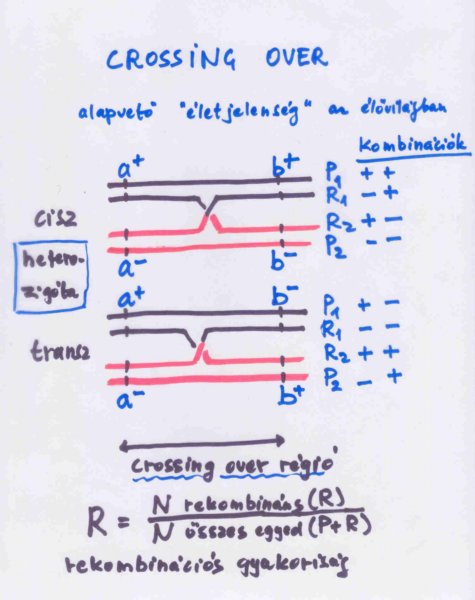 CROSSING OVER
alapvető "életjelenség" az élővilágban
kombinációk
a+ b+ P1 + +
R1 - +
cisz R2 + -
P2 - -
hetero-
zigóta
a- b-
a+ b- P1 + -
R1 - -
transz R2 + +
P2 - +
a- b+
crossing over régió
R = N rekombináns (R)
N összes egyed (P+R)
rekombinációs gyakoriság